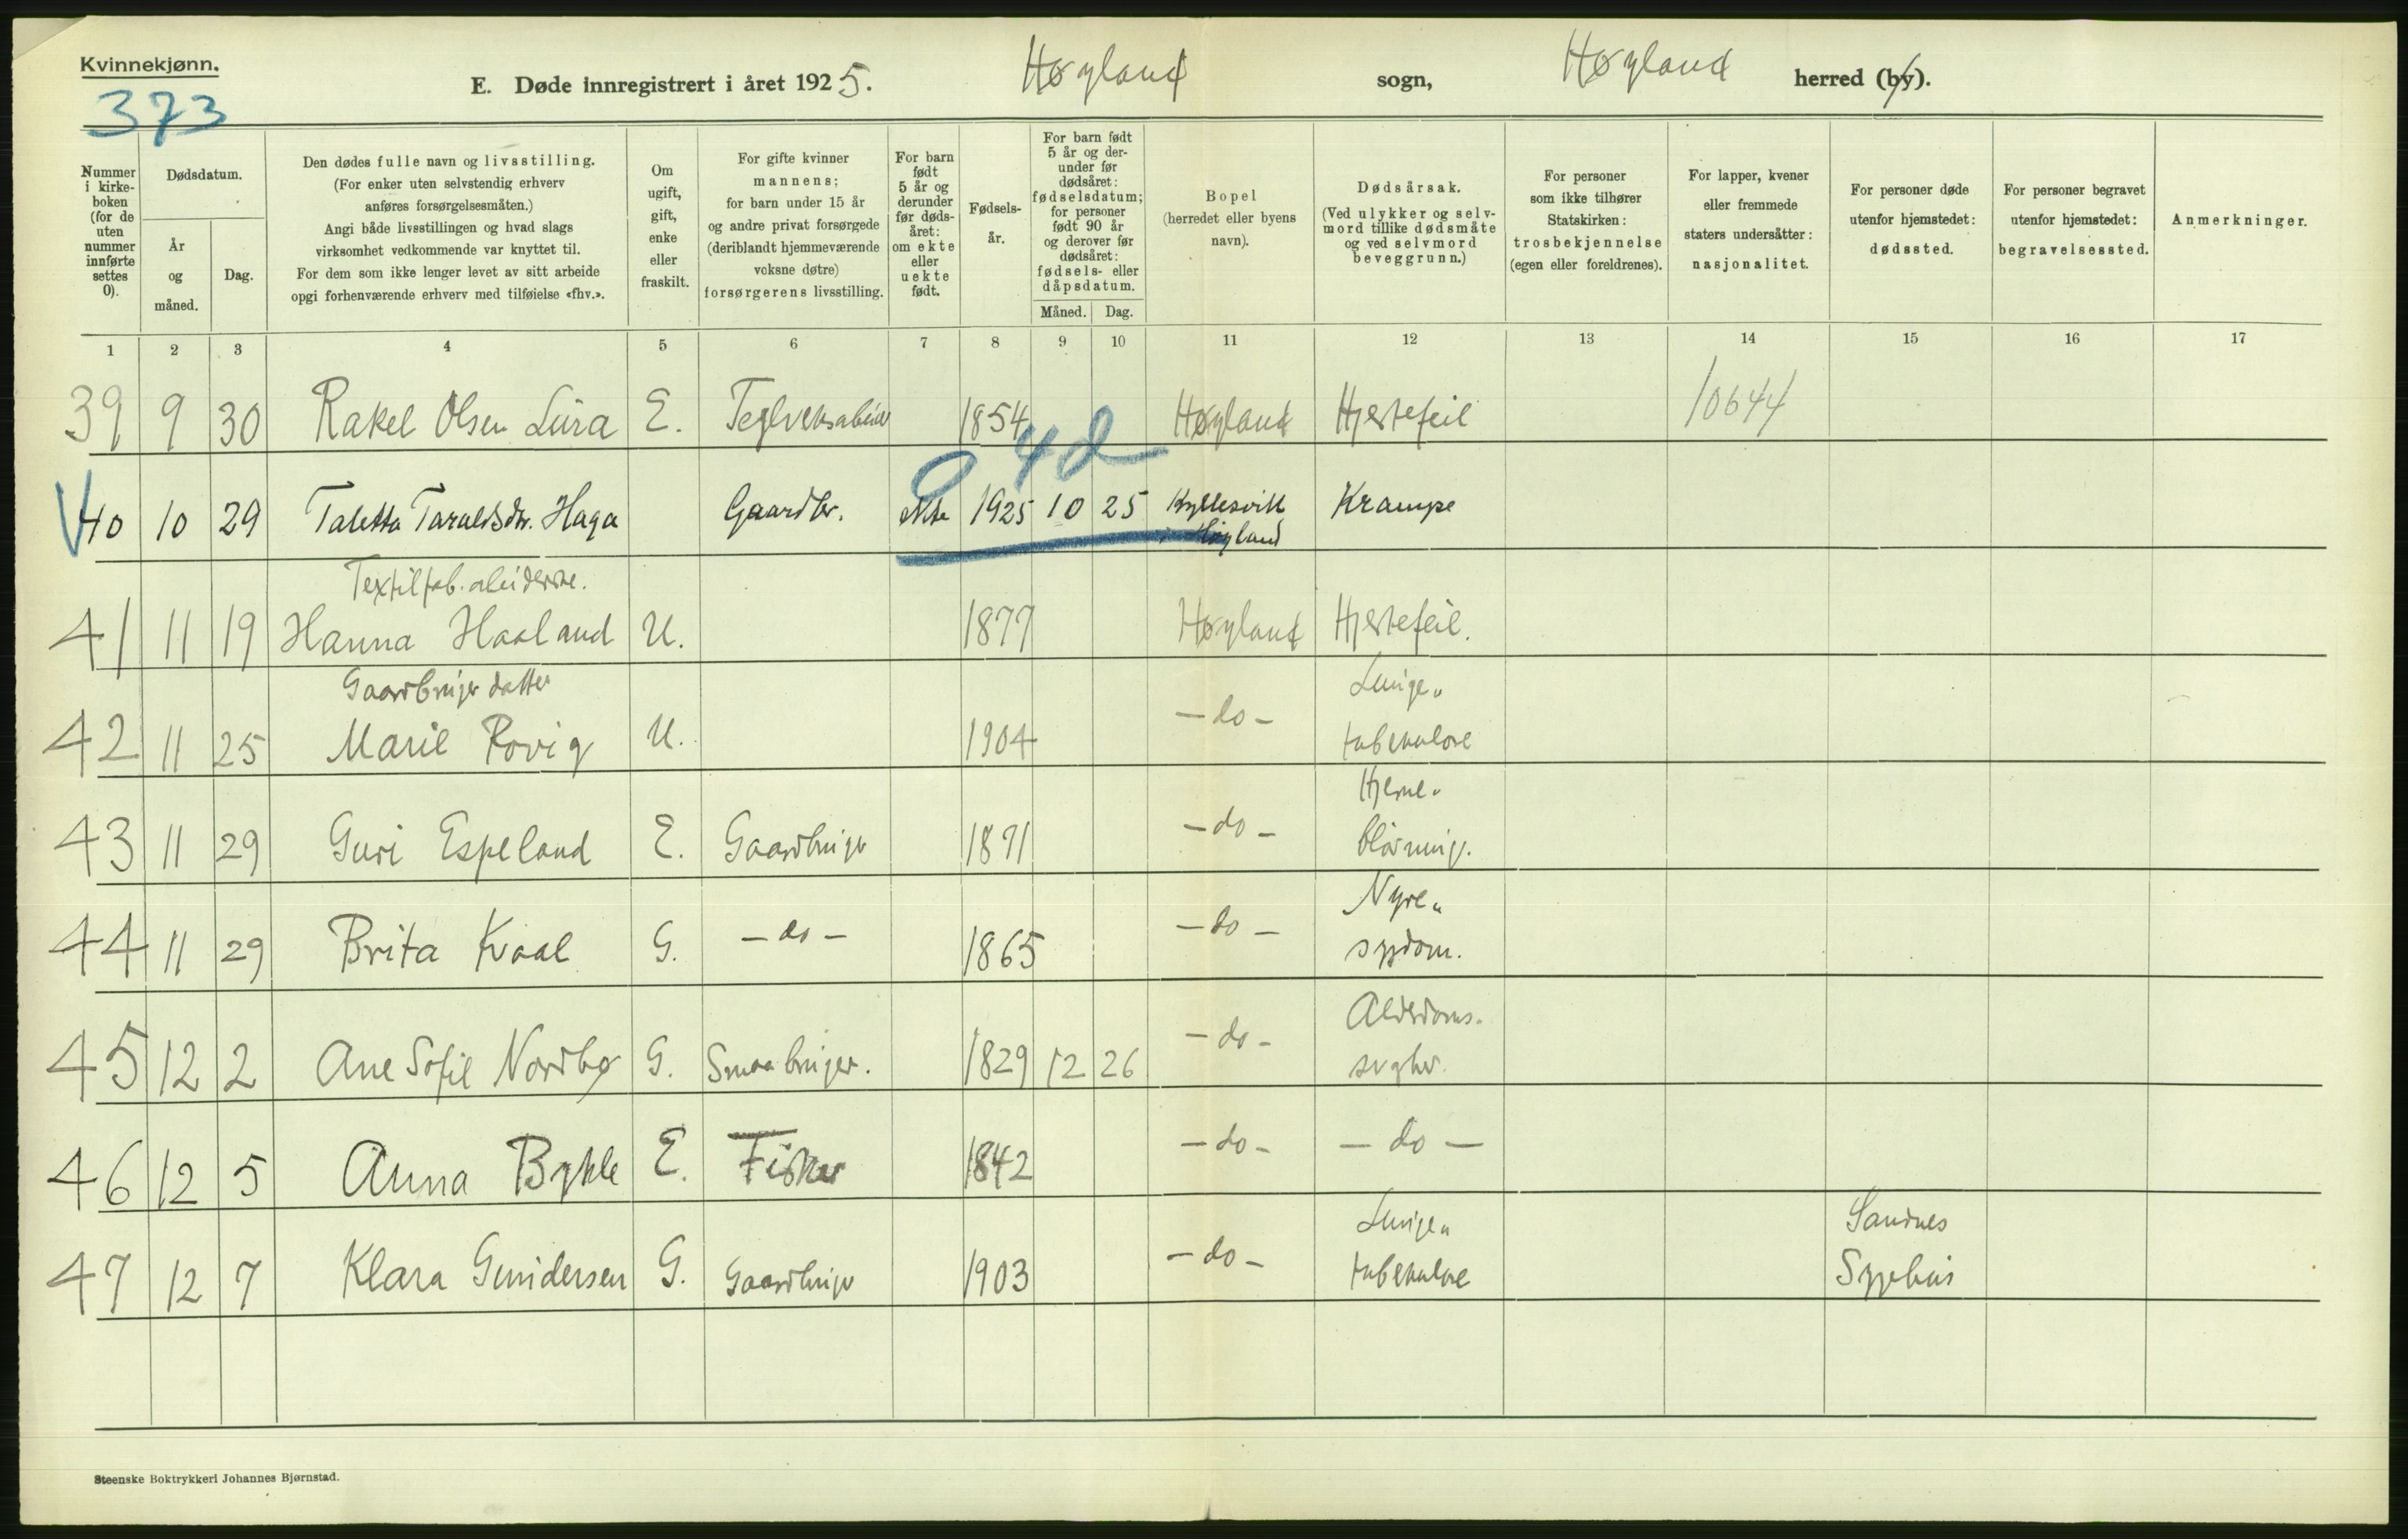 Kvinnekjønn.
373
E. Døde innregistrert i året 1925. Høyland sogn, Høyland herred (by).
Nummer i kirke-boken (for de uten nummer innførte settes 0).
Dødsdatum.
År og måned.
Dag.
Den dødes fulle navn og livsstilling.
(For enker uten selvstendig erhverv
anføres forsørgelsesmåten.)
Angi både livsstillingen og hvad slags
virksomhet vedkommende var knyttet til.
For dem som ikke lenger levet av sitt arbeide
opgi forhenværende erhverv med tilføielse «fhv.».
Om ugift, gift, enke eller fraskilt.
For gifte kvinner
mannens;
for barn under 15 år
og andre privat forsørgede
(deriblandt hjemmeværende
voksne døtre)
forsørgerens livsstilling.
For barn født 5 år og derunder før døds-året: om ekte eller uekte født.
Fødsels-år.
For barn født 5 år og der-under før dødsåret: fødselsdatum; for personer født 90 år og derover før dødsåret: fødsels- eller dåpsdatum.
Måned. Dag.
Bopel
(herredet eller byens
navn).
Dødsårsak.
(Ved ulykker og selv-
mord tillike dødsmåte
og ved selvmord
beveggrunn.)
For personer
som ikke tilhører
Statskirken:
trosbekjennelse
(egen eller foreldrenes).
For lapper, kvener
eller fremmede
staters undersåtter:
nasjonalitet.
For personer døde
utenfor hjemstedet:
dødssted.
For personer begravet
utenfor hjemstedet:
begravelsessted.
Anmerkninger.
1 2 3 4 5 6 7 8 9 10 11 12 13 14 15 16 17
39 9 30 Rakel Olsen Lura E. 1854 Høyland Hjertefeil 10644
0 4d
40 10 29 Taletta Taraldsdtr. Haga Gaardbr. ekte 1925 10 25 Kyllesvik i Høyland Krampe
Textilfab. arbeiderske.
41 11 19 Hanna Haaland U. 1877 Høyland Hjertefeil.
Gaardbruger datter
42 11 25 Marie Rovig U. 1904 - do - Lunge" tuberkulose
43 11 29 Guri Espeland E. Gaardbruger 1871 - do - Hjerne" blødning.
44 11 29 Brita Kvaal G. - do - 1865 - do - Nyre" sygdom.
45 12 2 Ane Sofie Nordbø G. Smaabruger. 1829 12 26 - do - Alderdoms- svaghed.
46 12 5 Anna Bykle E. Fisker 1842 - do - - do -
47 12 7 Klara Gundersen G. Gaardbruger 1903 - do - Lunge" tuberkulose Sandnes Sygehus
Steenske Boktrykkeri Johannes Bjørnstad.